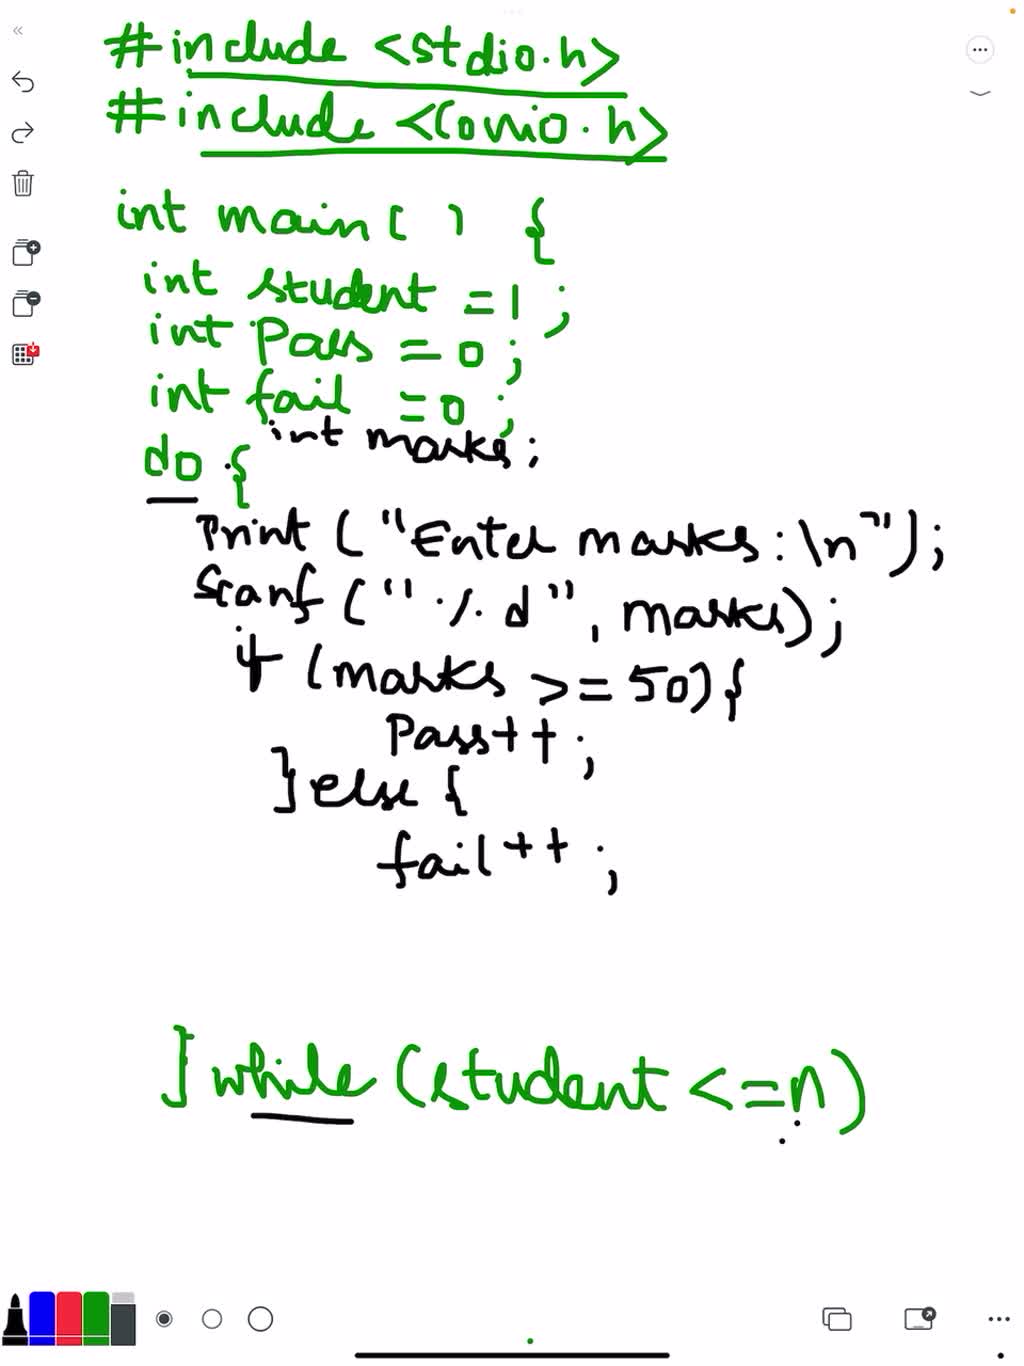 #include <stdio.h>
#include <conio.h>
int main( ) {
int student = 1 ;
int Pass = 0 ;
int fail = 0 ;
int marks ;
do {
Print ( "Enter marks : \n" ) ;
Scanf ( " % d " , marks) ;
if (marks >= 50) {
Pass++ ;
} else {
fail++ ;
} while (student <= n)